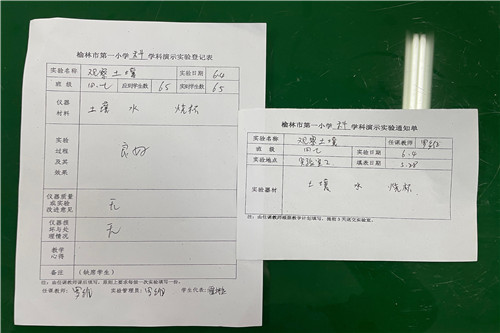 榆林市第一小学 科学 学科演示实验登记表
实验名称 观察土壤 实验日期 6.4
班级 四.七 应到学生数 65 实到学生数 65
仪器材料 土壤 水 烧杯
实验过程及其效果 良好
仪器质量或实验改进意见 无
仪器损坏与处理情况 无
教学心得
备注 (缺席学生)
注:由任课教师课后填写,真照上课要求每做一次实验填写一份。
任课教师: 实验管理员: 学生代表:
榆林市第一小学 科学 学科演示实验通知单
实验名称 观察土壤 任课教师
班级 四.七 实验日期 6.4
实验地点 实验室 填表日期 5.28
实验器材 土壤 水 烧杯
注:由任课教师根据教学计划填写,提前3天送交实验室。